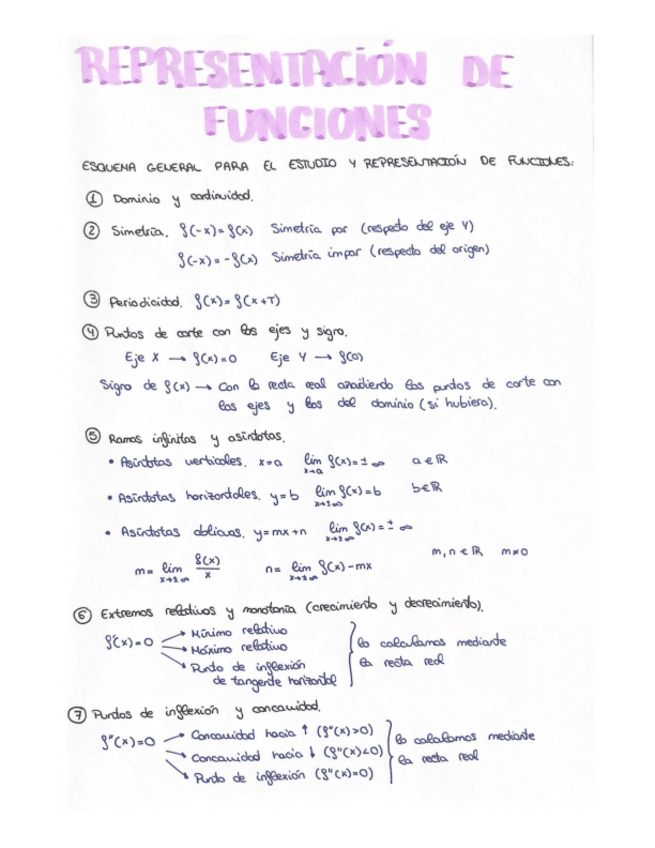 REPRESENTACIÓN DE
FUNCIONES
ESQUEMA GENERAL PARA EL ESTUDIO Y REPRESENTACIÓN DE FUNCIONES:
① Dominio y continuidad.
② Simetría. f(-x)=f(x) Simetría par (respecto del eje Y)
f(-x)=-f(x) Simetría impar (respecto del origen)
③ Periodicidad. f(x)=f(x+T)
④ Puntos de corte con los ejes y signo.
Eje X → f(x)=0 Eje Y → f(0)
Signo de f(x) → Con la recta real añadiendo los puntos de corte con
los ejes y los del dominio (si hubiera).
⑤ Ramas infinitas y asíntotas.
• Asíntotas verticales. x=a lim x→a f(x)=±∞ a∈ℝ
• Asíntotas horizontales. y=b lim x→±∞ f(x)=b b∈ℝ
• Asíntotas oblicuas. y=mx+n lim x→±∞ f(x)=±∞
m, n∈ℝ m≠0
m= lim x→±∞ f(x)/x n= lim x→±∞ f(x)-mx
⑥ Extremos relativos y monotonía (crecimiento y decrecimiento).
f'(x)=0 → Mínimo relativo
→ Máximo relativo
→ Punto de inflexión
de tangente horizontal
lo calculamos mediante
la recta real
⑦ Puntos de inflexión y concavidad.
f''(x)=0 → Concavidad hacia ↑ (f''(x)>0)
→ Concavidad hacia ↓ (f''(x)<0)
→ Punto de inflexión (f''(x)=0)
lo calculamos mediante
la recta real